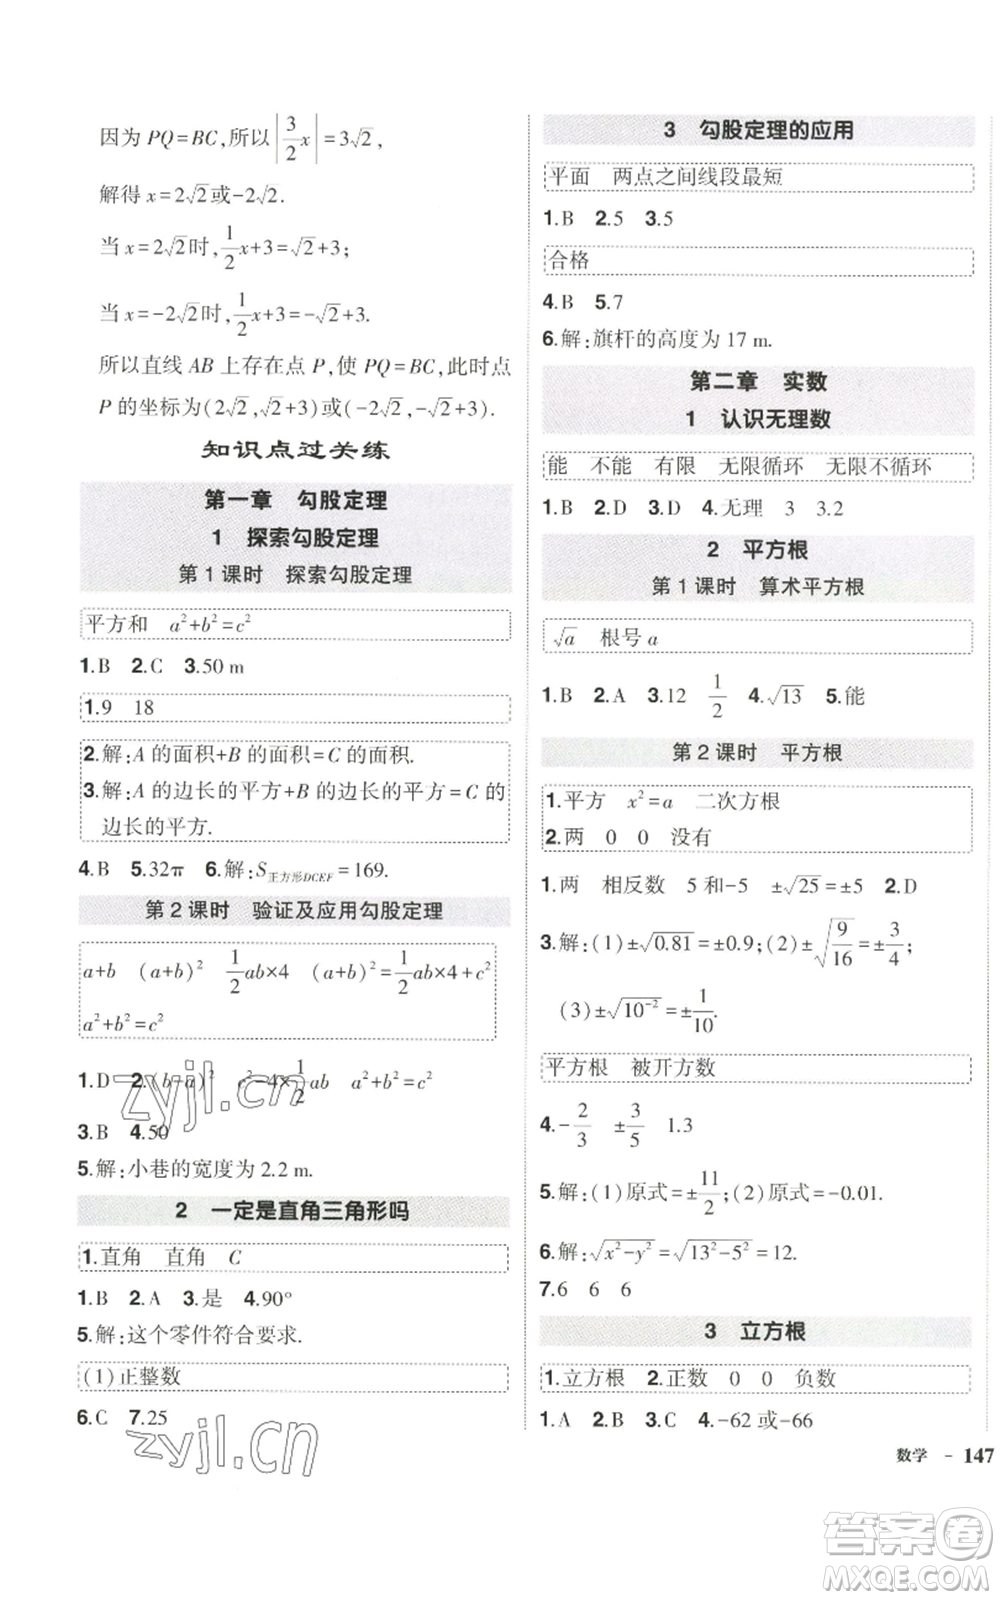 因为 PQ=BC,所以 |3/2 x|=3√2,
解得 x=2√2或-2√2.
当 x=2√2时,1/2 x+3=√2+3;
当 x=-2√2时,1/2 x+3=-√2+3.
所以直线 AB 上存在点 P,使 PQ=BC,此时点
P 的坐标为(2√2,√2+3)或(-2√2,-√2+3).
知识点过关练
第一章 勾股定理
1 探索勾股定理
第1课时 探索勾股定理
平方和 a²+b²=c²
1.B 2.C 3.50 m
1.9 18
2.解:A 的面积+B 的面积=C 的面积.
3.解:A 的边长的平方+B 的边长的平方=C 的
边长的平方.
4.B 5.32π 6.解:S正方形DCEF=169.
第2课时 验证及应用勾股定理
a+b (a+b)² 1/2 ab×4 (a+b)²=1/2 ab×4+c²
a²+b²=c²
1.D 2.(b-a)² c²-4×1/2 ab a²+b²=c²
3.B 4.50
5.解:小巷的宽度为 2.2 m.
2 一定是直角三角形吗
1.直角 直角 C
1.B 2.A 3.是 4.90°
5.解:这个零件符合要求.
(1)正整数
6.C 7.25
3 勾股定理的应用
平面 两点之间线段最短
1.B 2.5 3.5
合格
4.B 5.7
6.解:旗杆的高度为 17 m.
第二章 实数
1 认识无理数
能 不能 有限 无限循环 无限不循环
1.B 2.D 3.D 4.无理 3 3.2
2 平方根
第1课时 算术平方根
√a 根号 a
1.B 2.A 3.12 1/2 4.√13 5.能
第2课时 平方根
1.平方 x²=a 二次方根
2.两 0 0 没有
1.两 相反数 5 和-5 ±√25=±5 2.D
3.解:(1)±√0.81=±0.9;(2)±√(9/16)=±3/4;
(3)±√(10⁻²)=±1/10.
平方根 被开方数
4.-2/3 ±3/5 1.3
5.解:(1)原式=±11/2;(2)原式=-0.01.
6.解:√(x²-y²)=√(13²-5²)=12.
7.6 6 6
3 立方根
1.立方根 2.正数 0 0 负数
1.A 2.B 3.C 4.-62 或-66
数学 - 147
zyjl.cn
zyjl.cn
答案圈
MXQE.COM